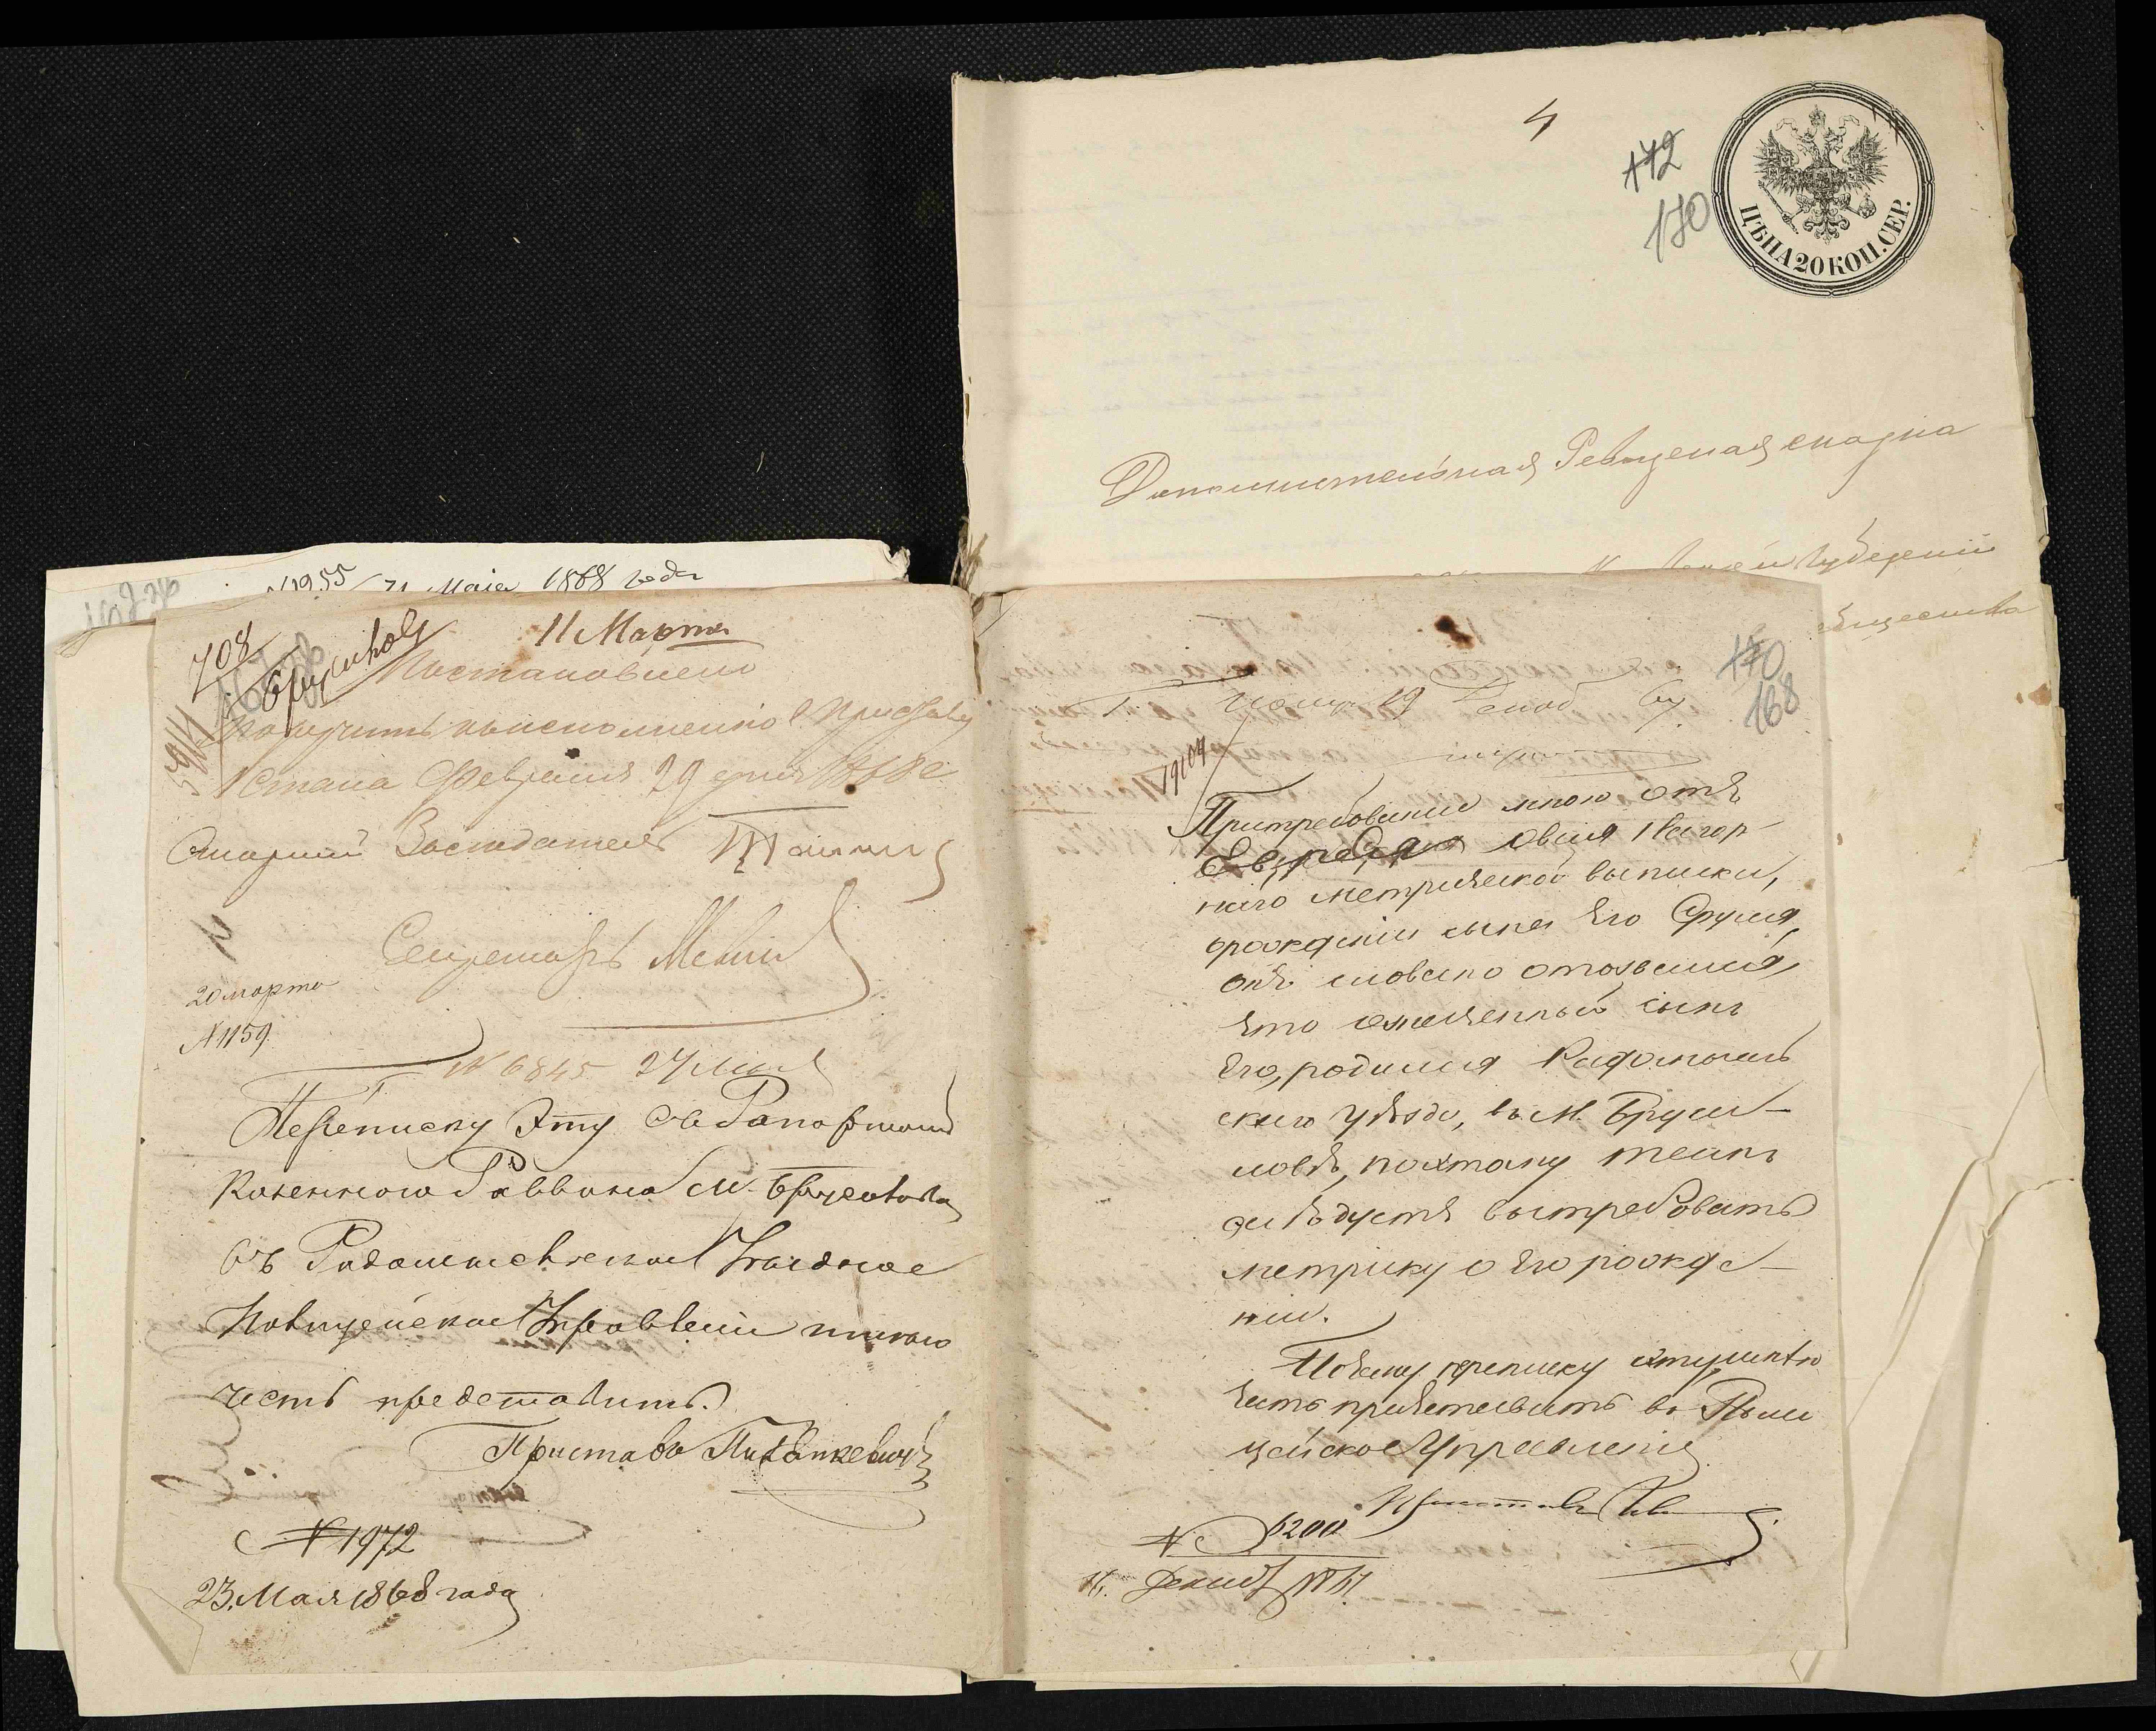 4
172
170
ЦѢНА 20 КОП. СЕР.
Дополнительная Ревизская сказка
Губерніи
общества
N 1955 21 Маіа 1868 года
708
11 Марта
Постановлено
поручить къ исполненію Приставу
1 стана Февраля 29 дня 1868 г
Старшій Заседатель
Секретарь
20 марта
N 1159
N 6845 27 Мая
Переписку Эту съ Рапортомъ
Казенного Раввина М. Брусилова
въ Радомысльское Уѣздное
Полицейское Управленіе имѣю
честь представить.
Приставъ
N 1972
23 Мая 1868 года
170
168
Получ 19 Декаб 67
19104
При требованіи мною отъ
Еврея Овшія Нагор-
наго метрической выписки,
о рожденіи сына его Сруля,
онъ словесно отозвался,
что означенный сынъ
его, родился Радомысль
скаго уѣзда, въ М. Бруси-
ловѣ, поэтому тамъ
слѣдуетъ вытребовать
метрику о его рожде-
ніи.
Почему переписку эту имѣю
честь представить въ Поли
цейское Управленіе
Приставъ
N 6200
16. Декаб 1867